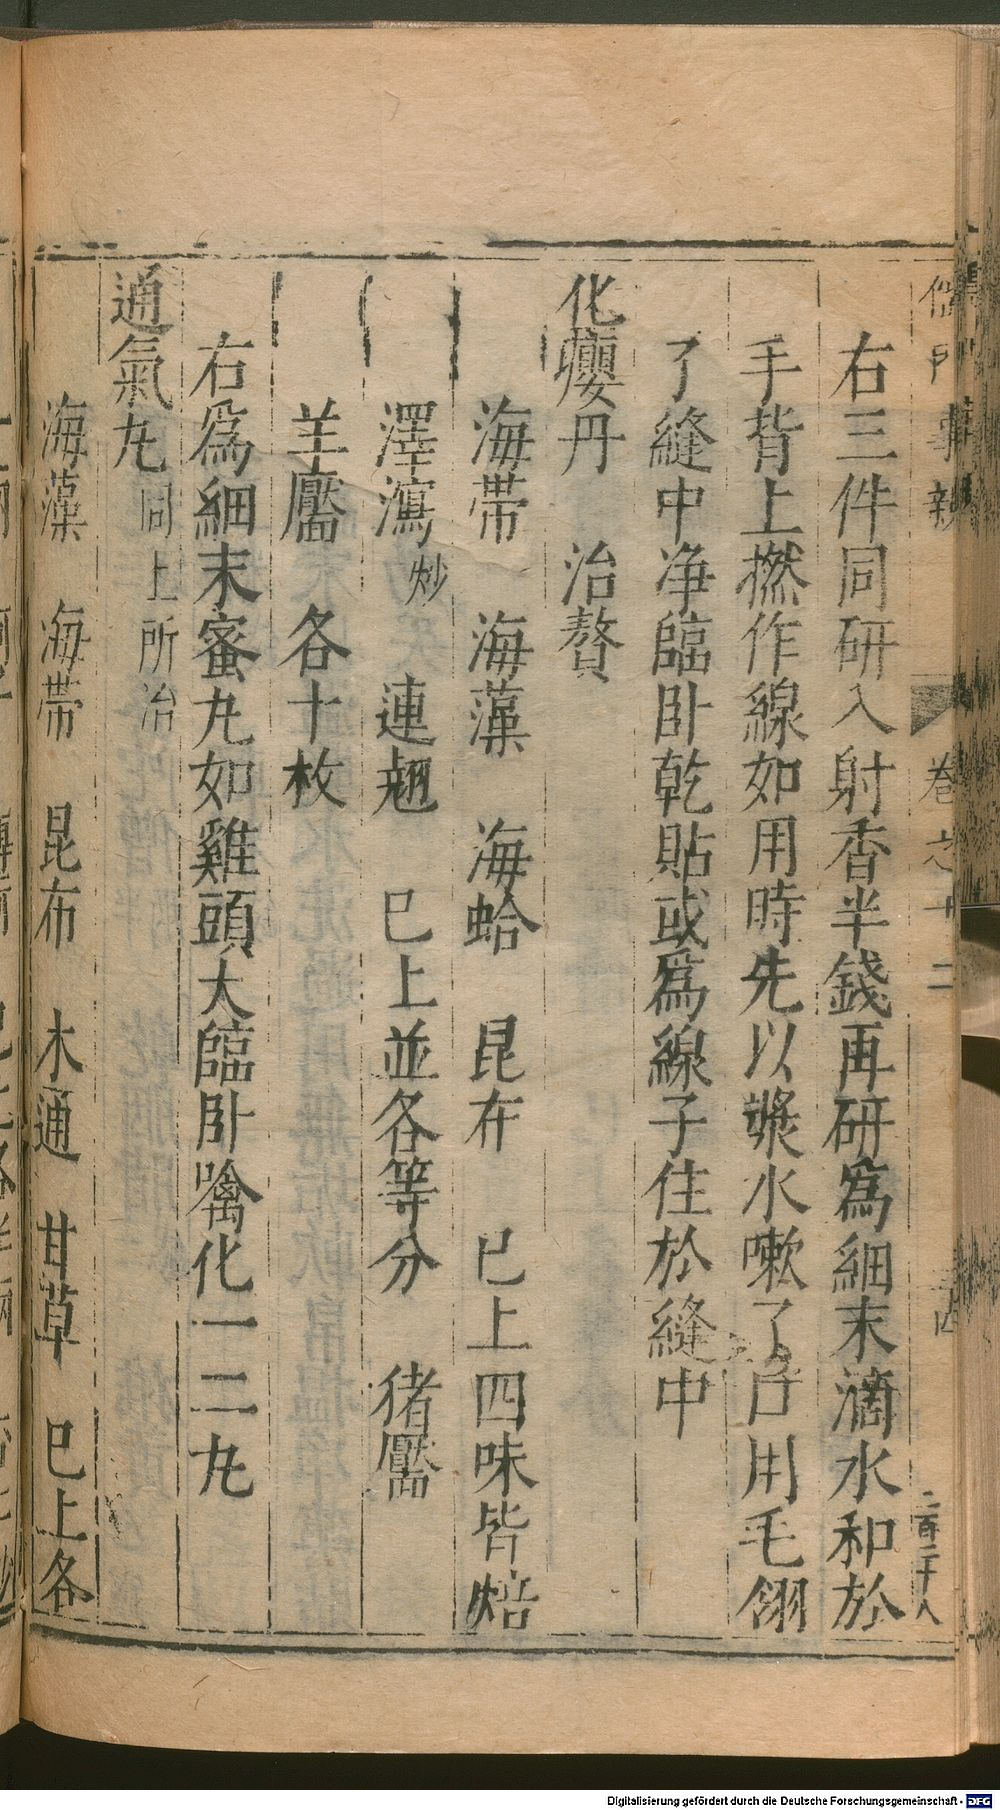 儒門事親 卷之十二
右三件同研入射香半錢再研爲細末滴水和於
手背上撚作線如用時先以漿水嗽了口用毛翎
了縫中净臨卧乾貼或爲線子住於縫中
化癭丹 治贅
海帶 海藻 海蛤 昆布 已上四味皆焙
澤瀉炒 連翹 已上並各等分 猪靨
羊靨 各十枚
右爲細末蜜丸如雞頭大臨卧噙化一二丸
通氣丸 同上所治
海藻 海帶 昆布 木通 甘草 已上各
Digitalisierung gefördert durch die Deutsche Forschungsgemeinschaft - DFG